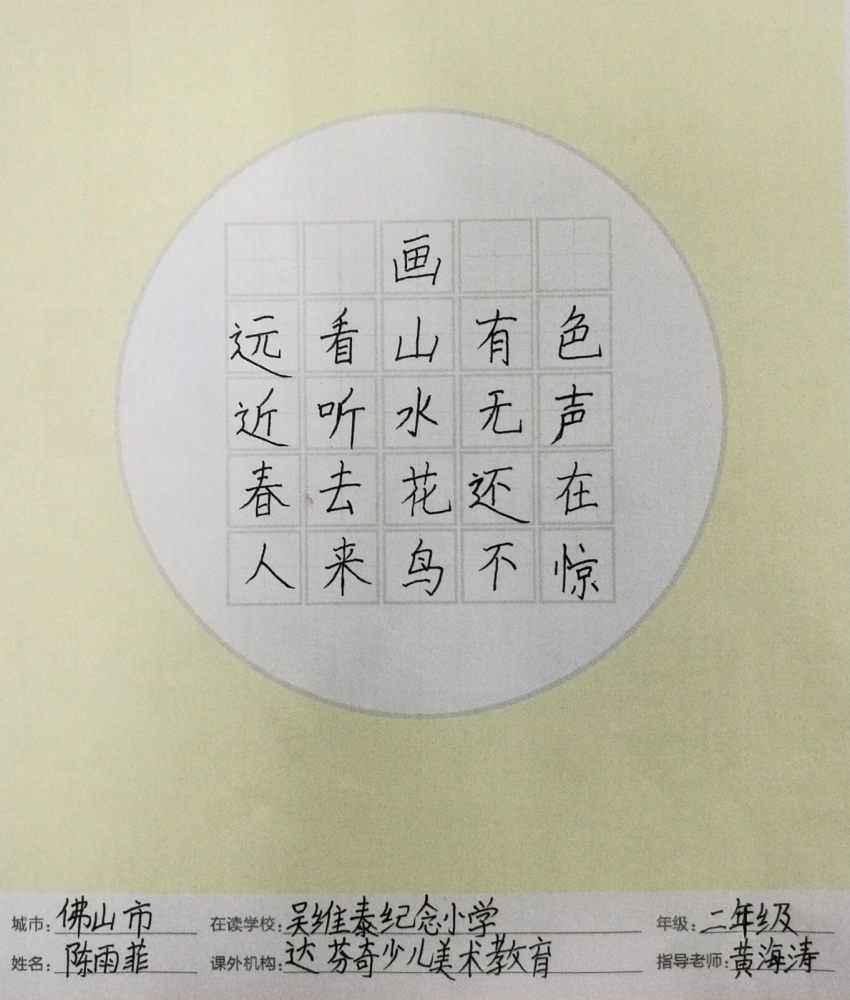 画
远看山有色
近听水无声
春去花还在
人来鸟不惊
城市：佛山市 在读学校：吴维泰纪念小学 年级：二年级
姓名：陈雨菲 课外机构：达芬奇少儿美术教育 指导老师：黄海涛